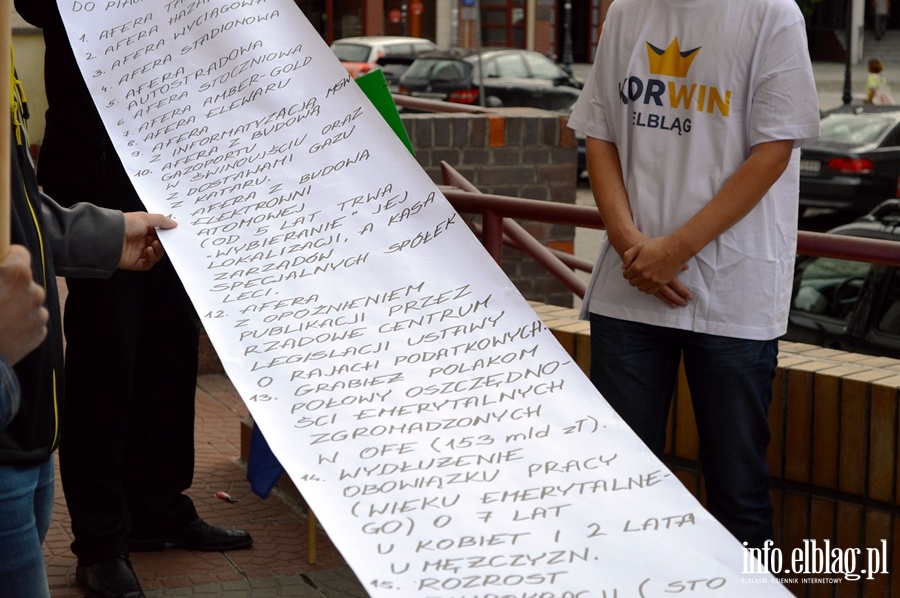 DO
1. AFERA
2. AFERA
3. AFERA WYCIĄGOWA
4. AFERA STADIONOWA
5. AFERA
AUTOSTRADOWA
6. AFERA STOCZNIOWA
7. AFERA AMBER-GOLD
8. AFERA ELEWARU
9. AFERA
Z INFORMATYZACJĄ MSW
10. AFERA Z BUDOWĄ
GAZOPORTU
W ŚWINOUJŚCIU ORAZ
Z DOSTAWAMI GAZU
Z KATARU.
AFERA Z BUDOWĄ
ELEKTROWNI
ATOMOWEJ
(OD 5 LAT TRWA
"WYBIERANIE" JEJ
LOKALIZACJI, A KASA
ZARZĄDÓW
SPECJALNYCH SPÓŁEK
LECI.
12. AFERA
Z OPÓŹNIENIEM
PUBLIKACJI PRZEZ
RZĄDOWE CENTRUM
LEGISLACJI USTAWY
O RAJACH PODATKOWYCH.
13. GRABIEŻ POLAKOM
POŁOWY OSZCZĘDNO-
ŚCI EMERYTALNYCH
ZGROMADZONYCH
W OFE (153 mld zł).
14. WYDŁUŻENIE
OBOWIĄZKU PRACY
(WIEKU EMERYTALNE-
GO) O 7 LAT
U KOBIET I 2 LATA
U MĘŻCZYZN.
15. ROZROST
(STO
KORWIN
ELBLĄG
info.elblag.pl
ELBLĄSKI DZIENNIK INTERNETOWY